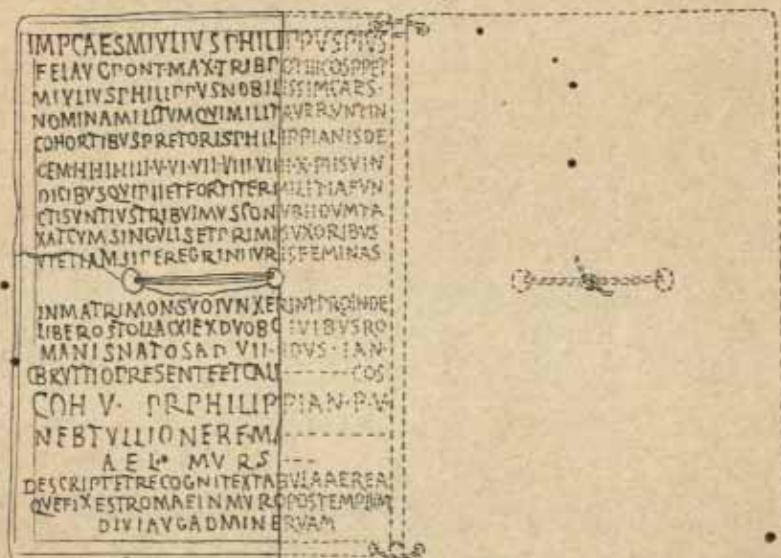 IMPCAESMIVLIVSPHILIPPVSPIVS
FELAVGPONT·MAX·TRIBPOTIIICOSPPET
MIVLIVSPHILIPPVSNOBILISSIMCAES·
NOMINAMILITVMQVIMILITAVERVNTIN
COHORTIBVSPRETORISPHILIPPIANISDE
DICIBVSQVIPIIETFORTITERMILITIAFVN
CTISVNTIVSTRIBVIMVSCONVBIIDVMTA
XATCVMSINGVLISETPRIMISVXORIBVS
VTETIAMSIPEREGRINIIVRISFEMINAS
INMATRIMONSVOIVNXERINTPROINDE
MANISNATOSAD VII·IDVS·IAN·
CBRVTTIOPRESENTEETCALL------COS
COH V· PRPHILIPPIAN·P·V
NEBTVLLIONEREMA-------
AEL· MVRS ----
DESCRIPTETRECOGNITEXTABVLAAEREA
QVEFIXESTROMAEINMVROPOSTEMPLVM
DIVIAVGADMINERVAM